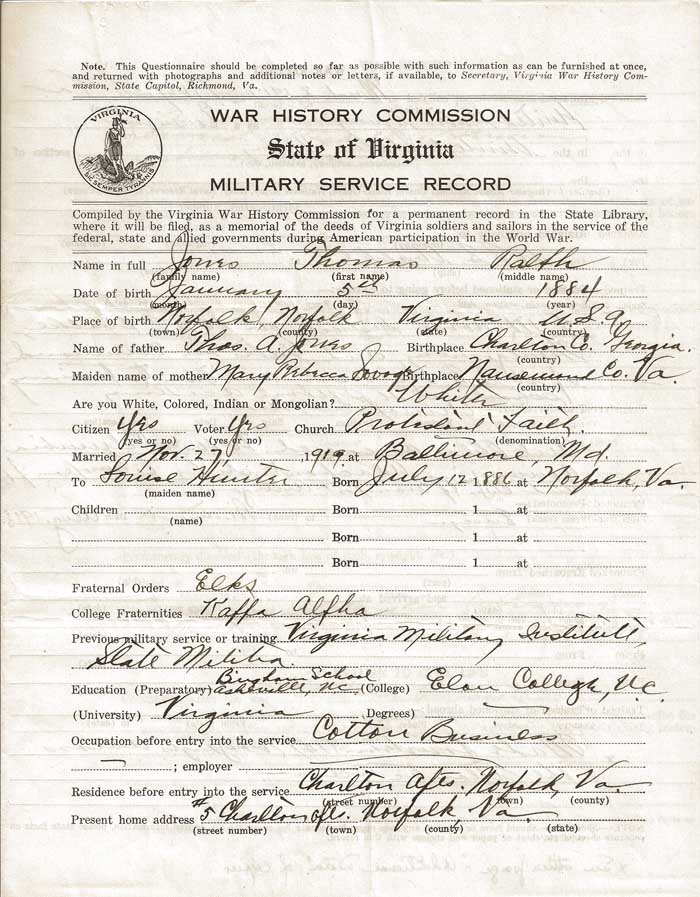 Note. This Questionnaire should be completed so far as possible with such information as can be furnished at once,
and returned with photographs and additional notes or letters, if available, to Secretary, Virginia War History Com-
mission, State Capitol, Richmond, Va.
VIRGINIA
SIC SEMPER TYRANNIS
WAR HISTORY COMMISSION
State of Virginia
MILITARY SERVICE RECORD
Compiled by the Virginia War History Commission for a permanent record in the State Library,
where it will be filed, as a memorial of the deeds of Virginia soldiers and sailors in the service of the
federal, state and allied governments during American participation in the World War.
Name in full Jones Thomas Ralph
(family name) (first name) (middle name)
Date of birth January 5th 1884
(month) (day) (year)
Place of birth Norfolk, Norfolk Virginia U.S.A
(town) (county) (state) (country)
Name of father Thos. A. Jones Birthplace Charlton Co. Georgia.
(country)
Maiden name of mother Mary Rebecca Savage Birthplace Nansemond Co. Va.
(country)
Are you White, Colored, Indian or Mongolian? White
Citizen Yes Voter Yes Church Protestant Faith.
(yes or no) (yes or no) (denomination)
Married Nov. 27, 1919. at Baltimore, Md.
To Louise Hunter Born July 12 1886 at Norfolk, Va.
(maiden name)
Children Born 1 at
(name)
Born 1 at
Born 1 at
Fraternal Orders Elks
College Fraternities Kaffa Alfha
Previous military service or training Virginia Military Institute,
State Militia.
Education (Preparatory) Bingham School Asheville, N.C. (College) Elon College, N.C.
(University) Virginia Degrees)
Occupation before entry into the service Cotton Business
; employer
Residence before entry into the service Charlton Apts. Norfolk, Va.
(street number) (town) (county)
Present home address #5 Charlton Apts. Norfolk, Va.
(street number) (town) (county) (state)